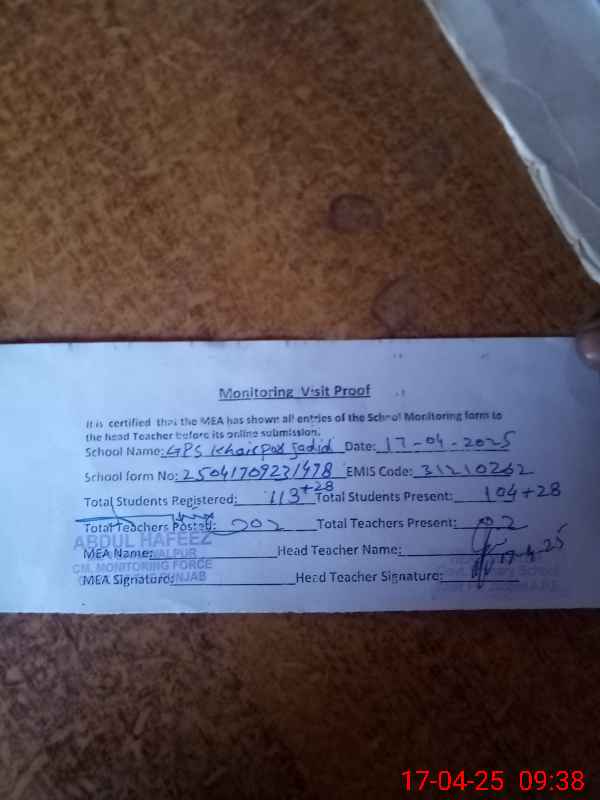 Monitoring Visit Proof
It is certified that the MEA has shown all entries of the School Monitoring form to
the head Teacher before its online submission.
School Name: GPS Khairpur Jadid Date: 17-04-2025
School form No: 25041709231478 EMIS Code: 31210262
Total Students Registered: 113+28 Total Students Present: 104+28
Total Teachers Posted: 02 Total Teachers Present: 02
ABDUL HAFEEZ
MEA Name: Head Teacher Name:
CM. MONITORING FORCE
17-4-25
MEA Signature: Head Teacher Signature:
17-04-25 09:38